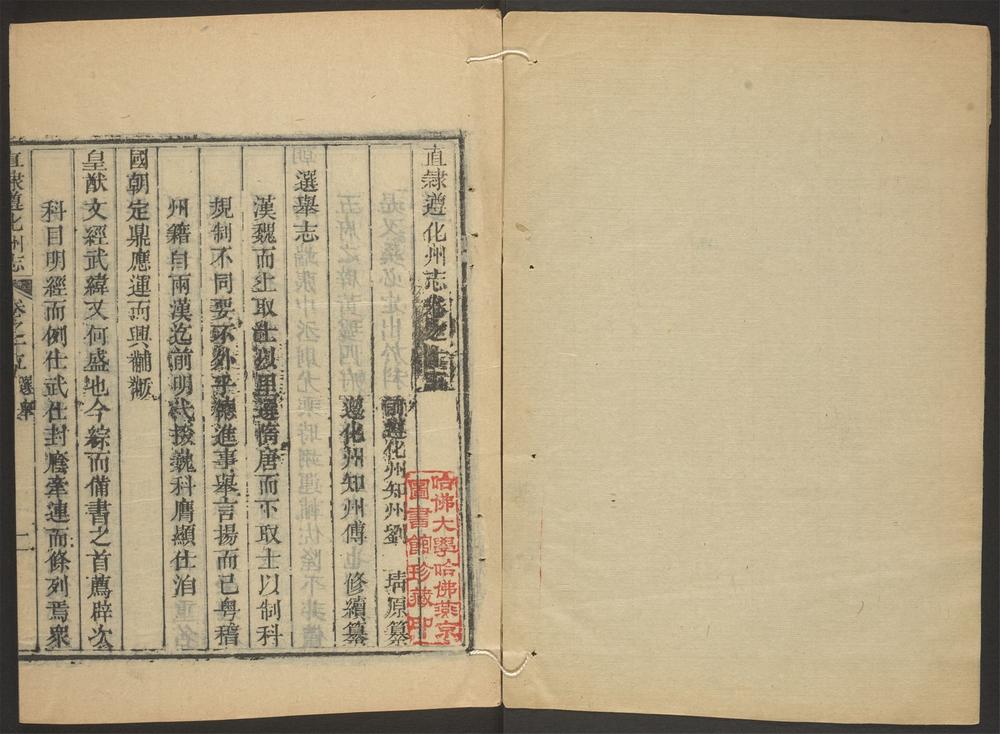 直隸遵化州志卷之十五
前遵化州知州劉 靖原纂
遵化州知州傅 修續纂
選舉志
漢魏而上取士以里選隋唐而下取士以制科
規制不同要不外乎德進事舉言揚而已粵稽
州籍自兩漢迄前明代掇巍科膺顯仕洎
國朝定鼎應運而興黼黻
皇猷文經武緯又何盛也今綜而備書之首薦辟次
科目明經而例仕武仕封廕牽連而條列焉衆
直隸遵化州志 卷之十五 選舉 一
哈佛大學哈佛燕京
圖書館珍藏印